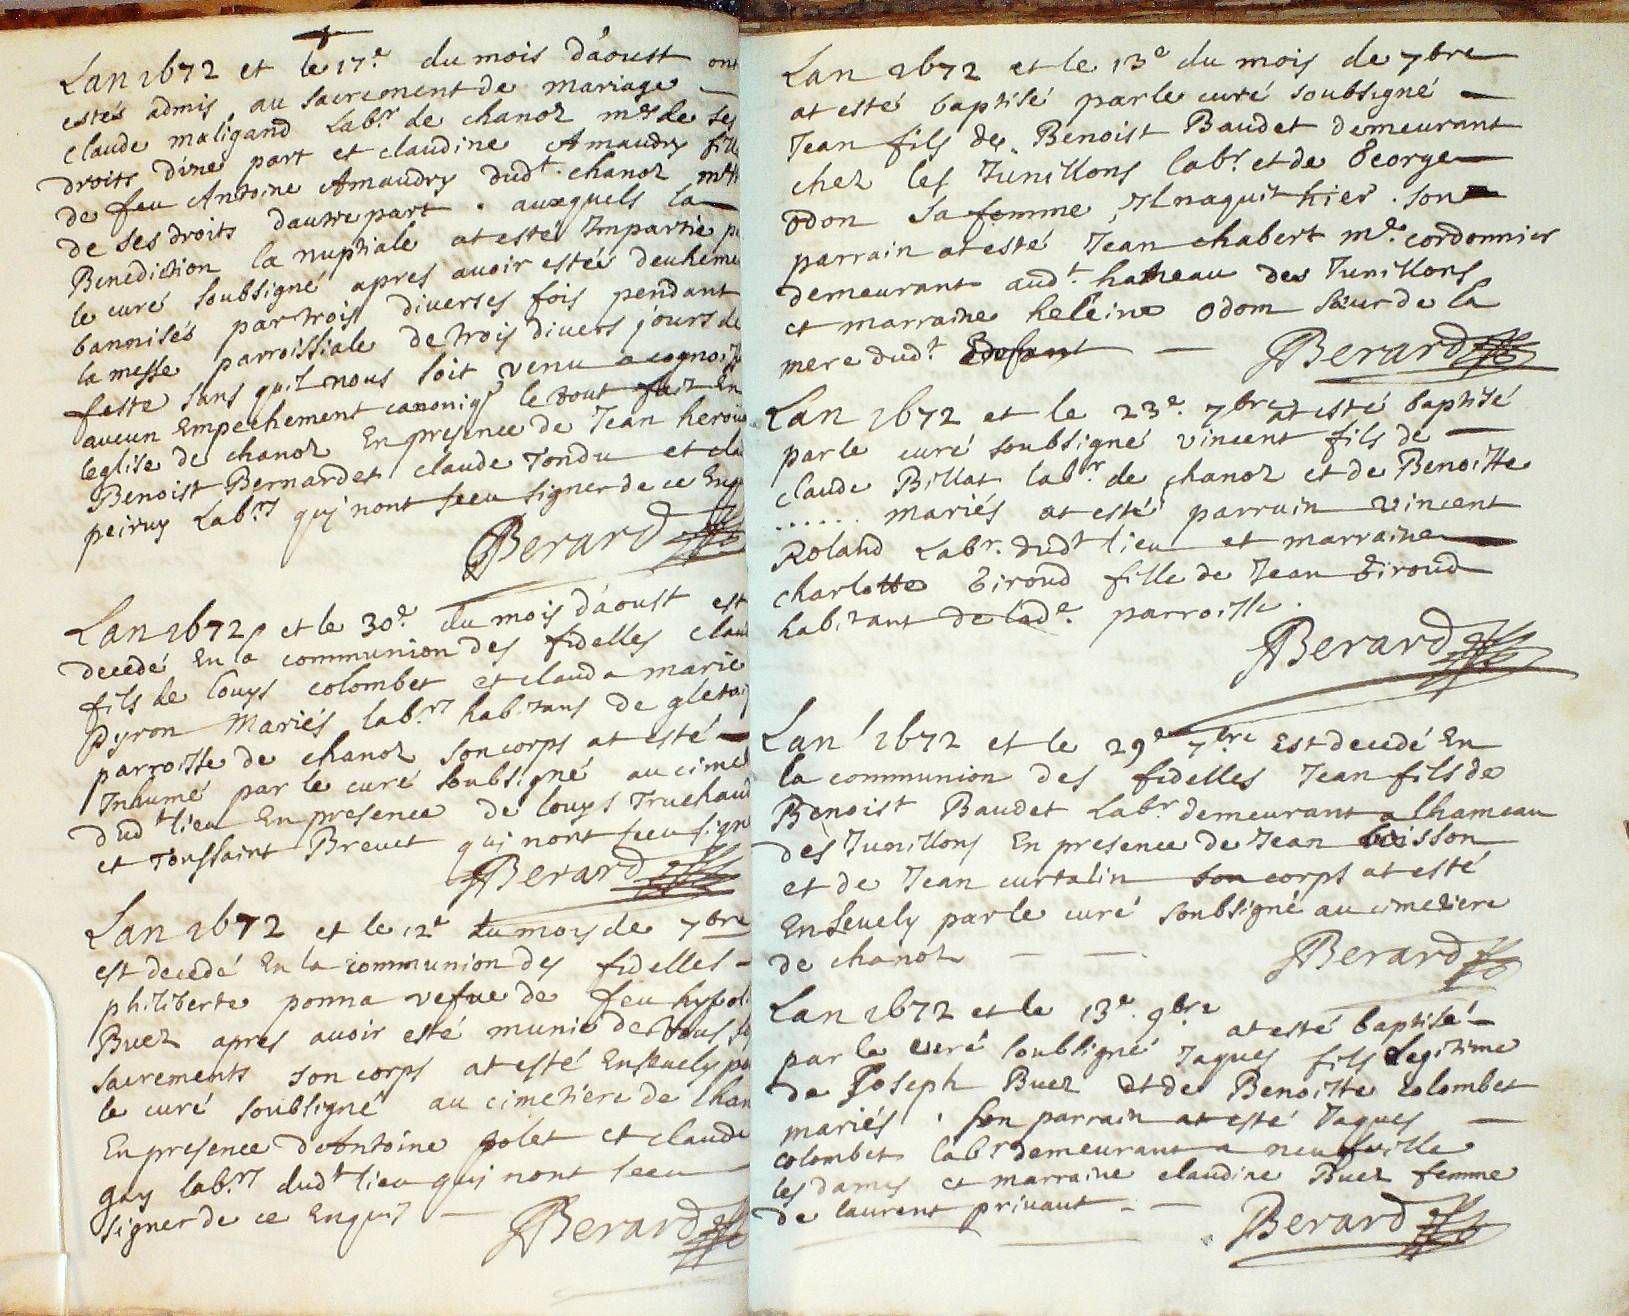 Lan 1672 et le 17e. du mois d'aoust ont
estés admis au sacrement de mariage
claude maligand Labr. de chanoz mre de ses
droits d'une part et claudine Amaudry fille
de feu Antoine Amaudry dudt. chanoz
de ses droits dautre part. auxquels la
Benediction la nuptiale at esté Impartie p
le curé soubsigné apres auoir estéé deuheme
bannisés par trois diverses fois pendant
la messe parroissiale de trois divers jours de
feste sans quil nous soit venu a cognoi
aucun Empechement canoniq le tout fait En
leglise de chanoz En presence de Jean
Benoist Bernardet claude Tondu et cla
peiruy Labrs. quj nont sceu signer de ce Enq
Berard
Lan 1672 et le 30e. du mois d'aoust est
decedé En la communion des fidelles clau
fils de louys colombet et clauda marie
Pyron Mariés labrs. habitans de
parroisse de chanoz son corps at esté
Inhumé par le curé soubsigné au cime
dudt lieu En presence de louys Truchaud
et Toussaint Brevet quj nont sceu sign
Berard
Lan 1672 et le 12e du moys de 7bre
est decedé En la communion des fidelles
philiberte ponna vefue de feu hypol
Buez apres auoir esté munie de tous
sacrements son corps at esté Enseuely p
le curé soubsigné au cimetiere de Chan
En presence d'Antoine polet et claude
gay labrs. dudt lieu quj nont sceu
signer de ce Enquis
Berard
Lan 1672 et le 13e du mois de 7bre
at esté baptisé par le curé soubsigné
Jean fils de Benoist Baudet demeurant
chez les Junillons labr. et de George
odon sa femme, Il naquit hier. son
parrain at esté Jean chabert me. cordonnier
demeurant audt. hameau des Junillons
et marraine heleine Odom sœur de la
mere dudt. Enfant Berard
Lan 1672 et le 23e. 7bre at esté baptisé
par le curé soubsigné vincent fils de
claude Billat labr. de chanoz et de Benoitte
...... mariés at esté parrain vincent
Roland Labr. dudt lieu et marraine
charlotte Giroud fille de Jean Giroud
habitant de lade. parroisse.
Berard
Lan 1672 et le 29e 7bre Est decedé En
la communion des fidelles Jean fils de
Benoist Baudet Labr demeurant a lhameau
des Junillons En presence de Jean
et de Jean curtalin son corps at esté
Enseuely par le curé soubsigné au cimetiere
de chanoz
Berard
Lan 1672 et le 13e. 9bre at esté baptisé
par le curé soubsigné Jaques fils Legitime
de Joseph Buez et de Benoitte colombet
mariés. son parrain at esté Jaques
colombet labr demeurant a neufville
les dames et marraine claudine Buez femme
de laurent priuaut
Berard